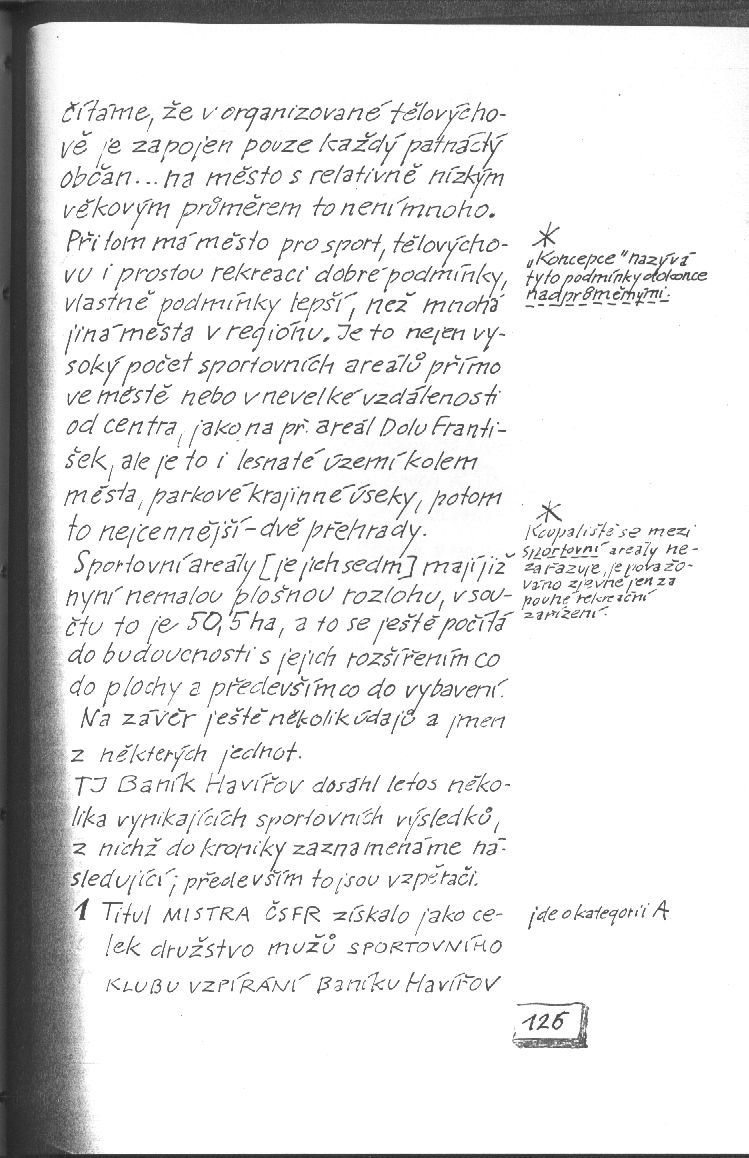 čítáme, že v organizované tělovýcho-
vě je zapojen pouze každý patnáctý
občan... na město s relativně nízkým
věkovým průměrem to není mnoho.
Při tom má město pro sport, tělovýcho-
vu i prostou rekreaci dobré podmínky,
vlastně podmínky lepší, než mnohá
jiná města v regiónu. Je to nejen vy-
soký počet sportovních areálů přímo
ve městě nebo v nevelké vzdálenosti
od centra, jako na př. areál Dolu Franti-
šek, ale je to i lesnaté území kolem
města, parkové krajinné úseky, potom
to nejcennější - dvě přehrady.
Sportovní areály [je jich sedm] mají již
nyní nemalou plošnou rozlohu, v sou-
čtu to je 50,5 ha, a to se ještě počítá
do budoucnosti s jejich rozšířením co
do plochy a především co do vybavení.
Na závěr ještě několik údajů a jmen
z některých jednot.
TJ Baník Havířov dosáhl letos něko-
lika vynikajících sportovních výsledků,
z nichž do kroniky zaznamenáme ná-
sledující; především to jsou vzpěrači.
1 Titul MISTRA ČSFR získalo jako ce-
lek družstvo mužů SPORTOVNÍHO
KLUBU VZPÍRÁNÍ Baníku Havířov
*
„Koncepce" nazývá
tyto podmínky dokonce
nadprůměrnými.
*
Koupaliště se mezi
sportovní areály ne-
zařazuje, je považo-
váno zjevně jen za
pouhé rekreační
zařízení.
jde o kategorii A
125